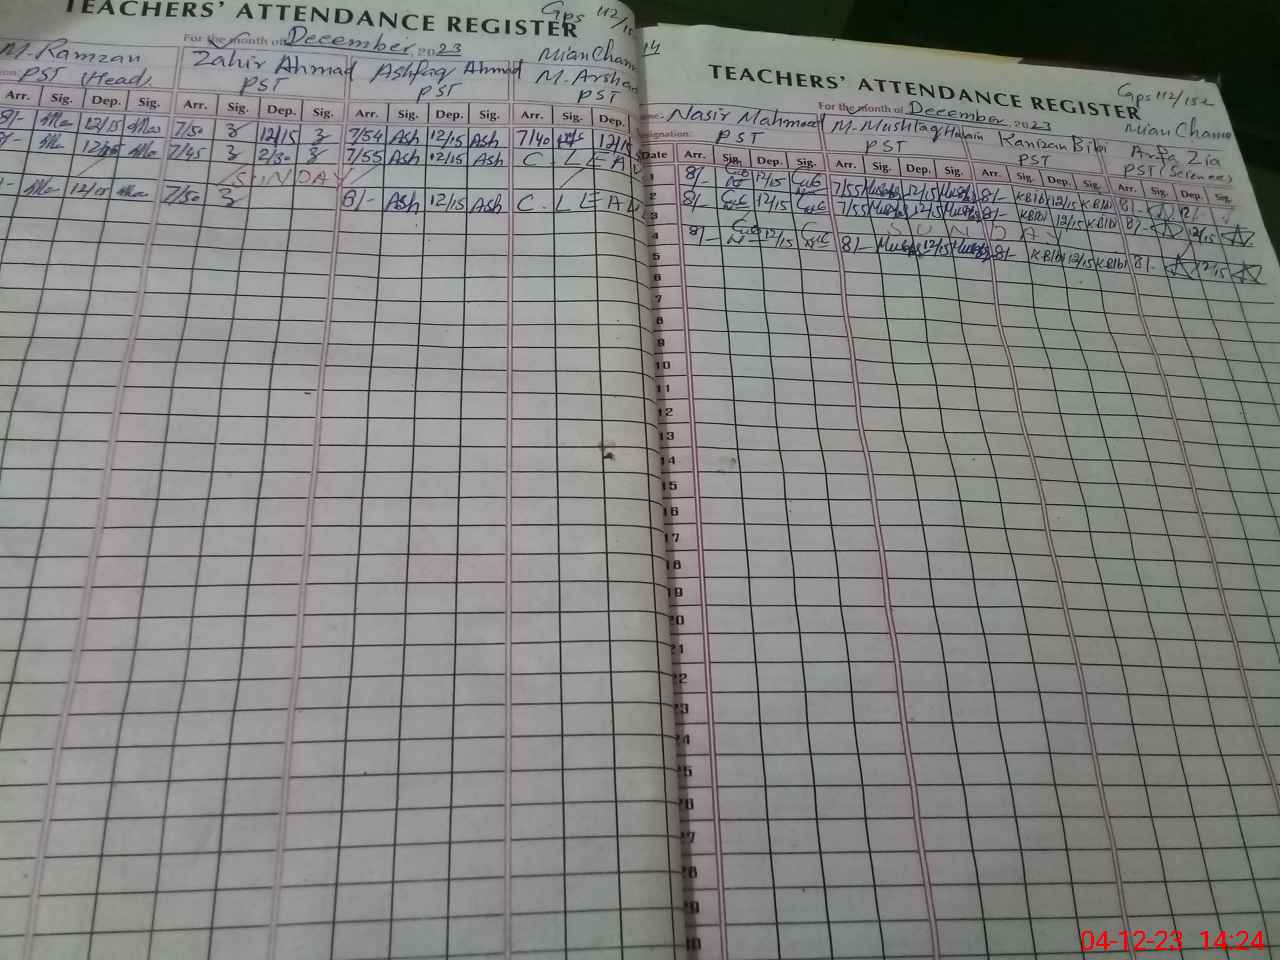 TEACHERS' ATTENDANCE REGISTER
Gps 112/15
For the month of December, 2023
M. Ramzan
Zahir Ahmad
Ashfaq Ahmad
Mian Chann
M. Arshad
PST (Head)
PST
PST
PST
Arr. Sig. Dep. Sig. Arr. Sig. Dep. Sig. Arr. Sig. Dep. Sig. Arr. Sig. Dep.
8/- 12/15 7/50 12/15 7/54 Ash 12/15 Ash 7/40 12/15
7/45 2/30 7/55 Ash 12/15 Ash C LEAV
SUNDAY
12/15 7/50 8/- Ash 12/15 Ash C. LEA
14
TEACHERS' ATTENDANCE REGISTER
Gps 112/15-L
For the month of December, 2023
Mian Channu
Nasir Mahmood
M. Mushtaq Hussain
Kanizan Bibi
Arfa Zia
Designation: PST
PST
PST
PST (Science)
Date Arr. Sig. Dep. Sig. Arr. Sig. Dep. Sig. Arr. Sig. Dep. Sig. Arr. Sig. Dep. Sig.
1 8/- 12/15 7/55 12/15 8/- KBibi 12/15 KBibi 8/-
2 8/- 12/15 7/55 12/15 8/- KBibi 12/15 KBibi 8/- 12/15
3 SUNDAY
4 8/- 12/15 8/- 12/15 8/- KBibi 12/15 KBibi 8/- 12/15
5
6
7
8
9
10
11
12
13
14
15
16
17
18
19
20
21
22
23
24
25
26
27
28
29
30
04-12-23 14:24